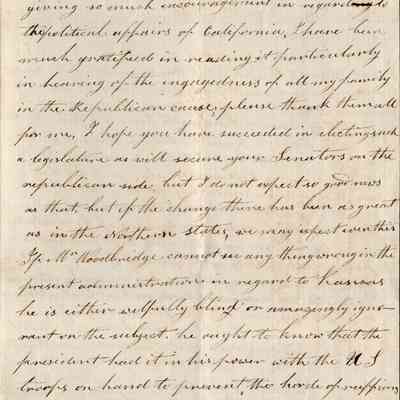 giving so much encouragement in regard to
the political affairs of California, I have been
much gratified in reading it particularly
in hearing of the ingagedness of all my family
in the Republican cause, please thank them all
for me, I hope you have succeeded in electing such
a legislature as will secure your Senators on the
republican side, but I do not expect so good news
as that, but if the change there has been as great
as in the Northern states, we may expect even this
If Mr Woodbridge cannot see any thing wrong in the
present administration in regard to Kansas
he is either wilfully blind or amazingly igno-
rant on the subject. he ought to know that the
president had it in his power with the U S
troops on hand to prevent, the horde of ruffians